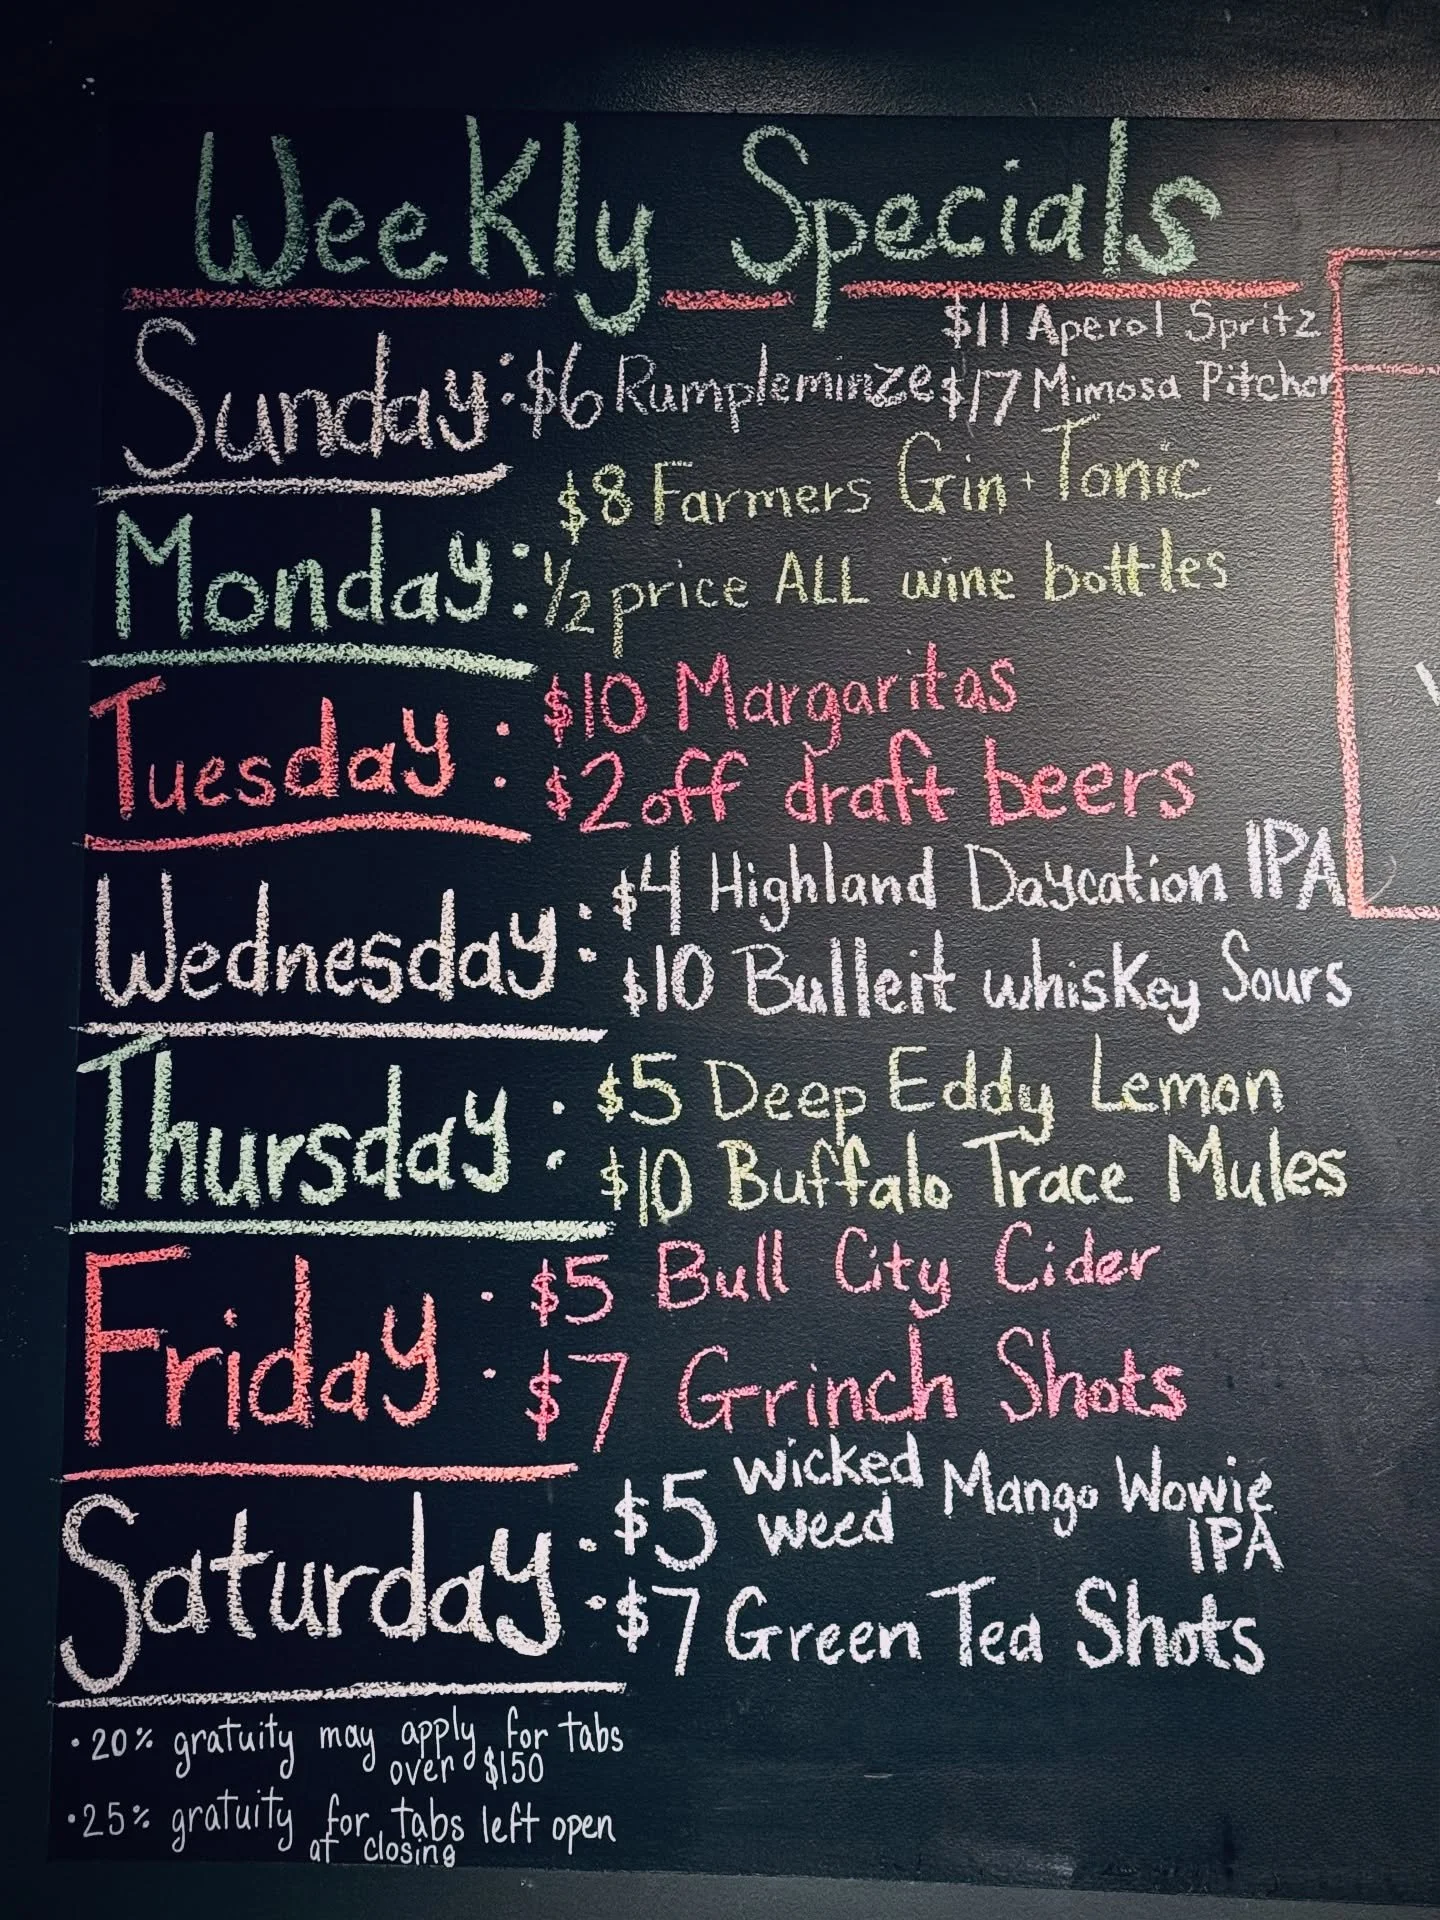 Weekly Specials
$11 Aperol Spritz
Sunday: $6 Rumpleminze $17 Mimosa Pitcher
$8 Farmers Gin + Tonic
Monday: 1/2 price ALL wine bottles
Tuesday: $10 Margaritas
$2 off draft beers
Wednesday: $4 Highland Daycation IPA
$10 Bulleit whiskey Sours
Thursday: $5 Deep Eddy Lemon
$10 Buffalo Trace Mules
Friday: $5 Bull City Cider
$7 Grinch Shots
Saturday: $5 Wicked Weed Mango Wowie IPA
$7 Green Tea Shots
• 20% gratuity may apply for tabs
over $150
• 25% gratuity for tabs left open
at closing